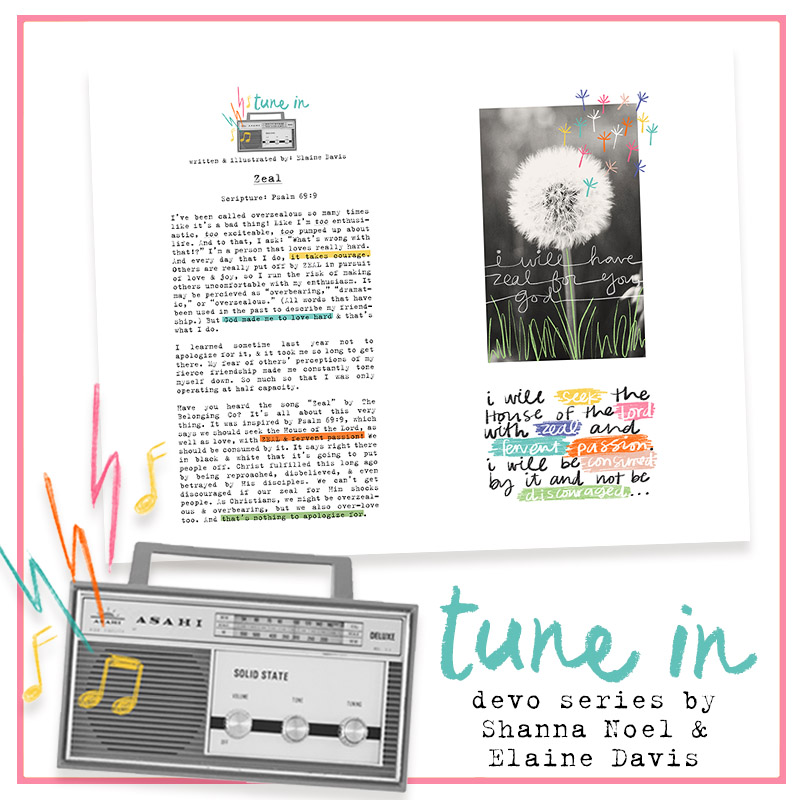 tune in
written & illustrated by: Elaine Davis
Zeal
Scripture: Psalm 69:9
I've been called overzealous so many times
like it's a bad thing! Like I'm too enthusi-
astic, too exciteable, too pumped up about
life. And to that, I ask: "What's wrong with
that!?" I'm a person that loves really hard.
And every day that I do, it takes courage.
Others are really put off by ZEAL in pursuit
of love & joy, so I run the risk of making
others uncomfortable with my enthusiasm. It
may be percieved as "overbearing," "dramat-
ic," or "overzealous." (All words that have
been used in the past to describe my friend-
ship.) But God made me to love hard & that's
what I do.
I learned sometime last year not to
apologize for it, & it took me so long to get
there. My fear of others' perceptions of my
fierce friendship made me constantly tone
myself down. So much so that I was only
operating at half capacity.
Have you heard the song "Zeal" by The
Belonging Co? It's all about this very
thing. It was inspired by Psalm 69:9, which
says we should seek the House of the Lord, as
well as love, with ZEAL & fervent passion! We
should be consumed by it. It says right there
in black & white that it's going to put
people off. Christ fulfilled this long ago
by being reproached, disbelieved, & even
betrayed by His disciples. We can't get
discouraged if our zeal for Him shocks
people. As Christians, we might be overzeal-
ous & overbearing, but we also over-love
too. And that's nothing to apologize for.
i will have
zeal for you
god
i will seek the
House of the Lord
with zeal and
fervent passion.
i will be consumed
by it and not be
discouraged...
ASAHI
ASAHI
DELUXE
SOLID STATE
VOLUME TONE TUNING
OFF
tune in
devo series by
Shanna Noel &
Elaine Davis